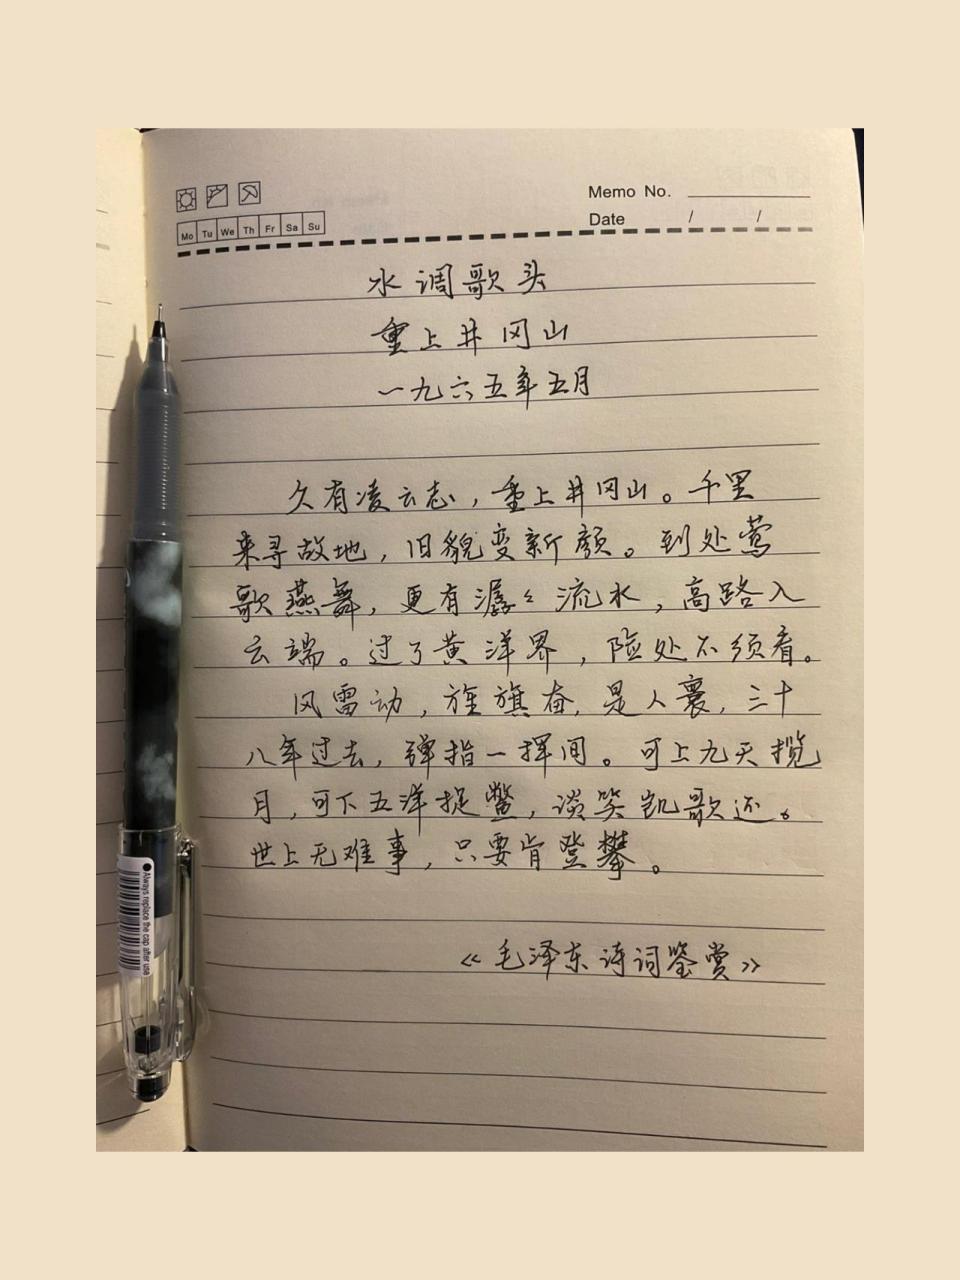 Memo No.
Mo Tu We Th Fr Sa Su
Date / /
水调歌头
重上井冈山
一九六五年五月
久有凌云志，重上井冈山。千里
来寻故地，旧貌变新颜。到处莺
歌燕舞，更有潺々流水，高路入
云端。过了黄洋界，险处不须看。
风雷动，旌旗奋，是人寰，三十
八年过去，弹指一挥间。可上九天揽
月，可下五洋捉鳖，谈笑凯歌还。
世上无难事，只要肯登攀。
《毛泽东诗词鉴赏》
Always replace the cap after use